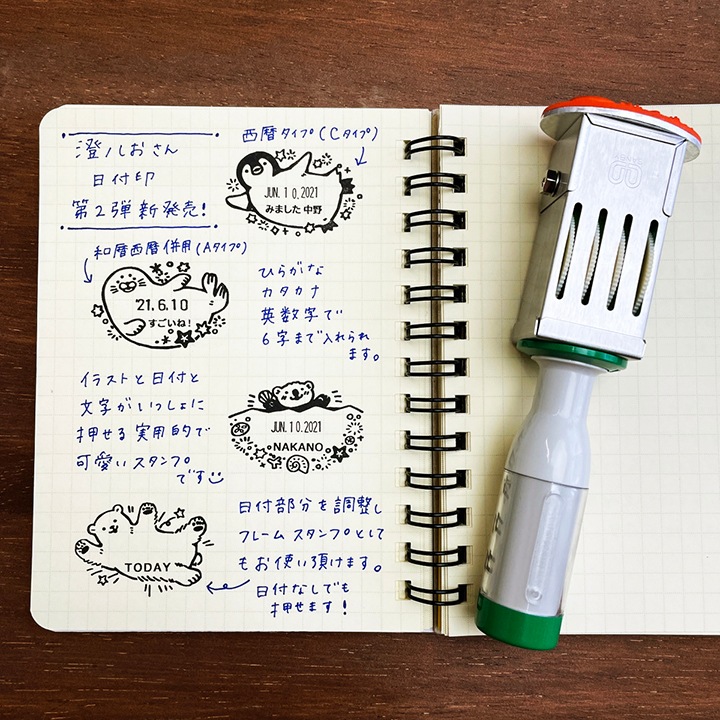 澄ノしおさん
日付印
第2弾新発売!
西暦タイプ(Cタイプ)
JUN.10.2021
みました 中野
和暦西暦併用(Aタイプ)
'21.6.10
すごいね!
ひらがな
カタカナ
英数字で
6字まで入れられ
ます。
イラストと日付と
文字がいっしょに
押せる実用的で
可愛いスタンプ
です
JUN.10.2021
NAKANO
TODAY
日付部分を調整し
フレームスタンプとして
もお使い頂けます。
日付なしでも
押せます!